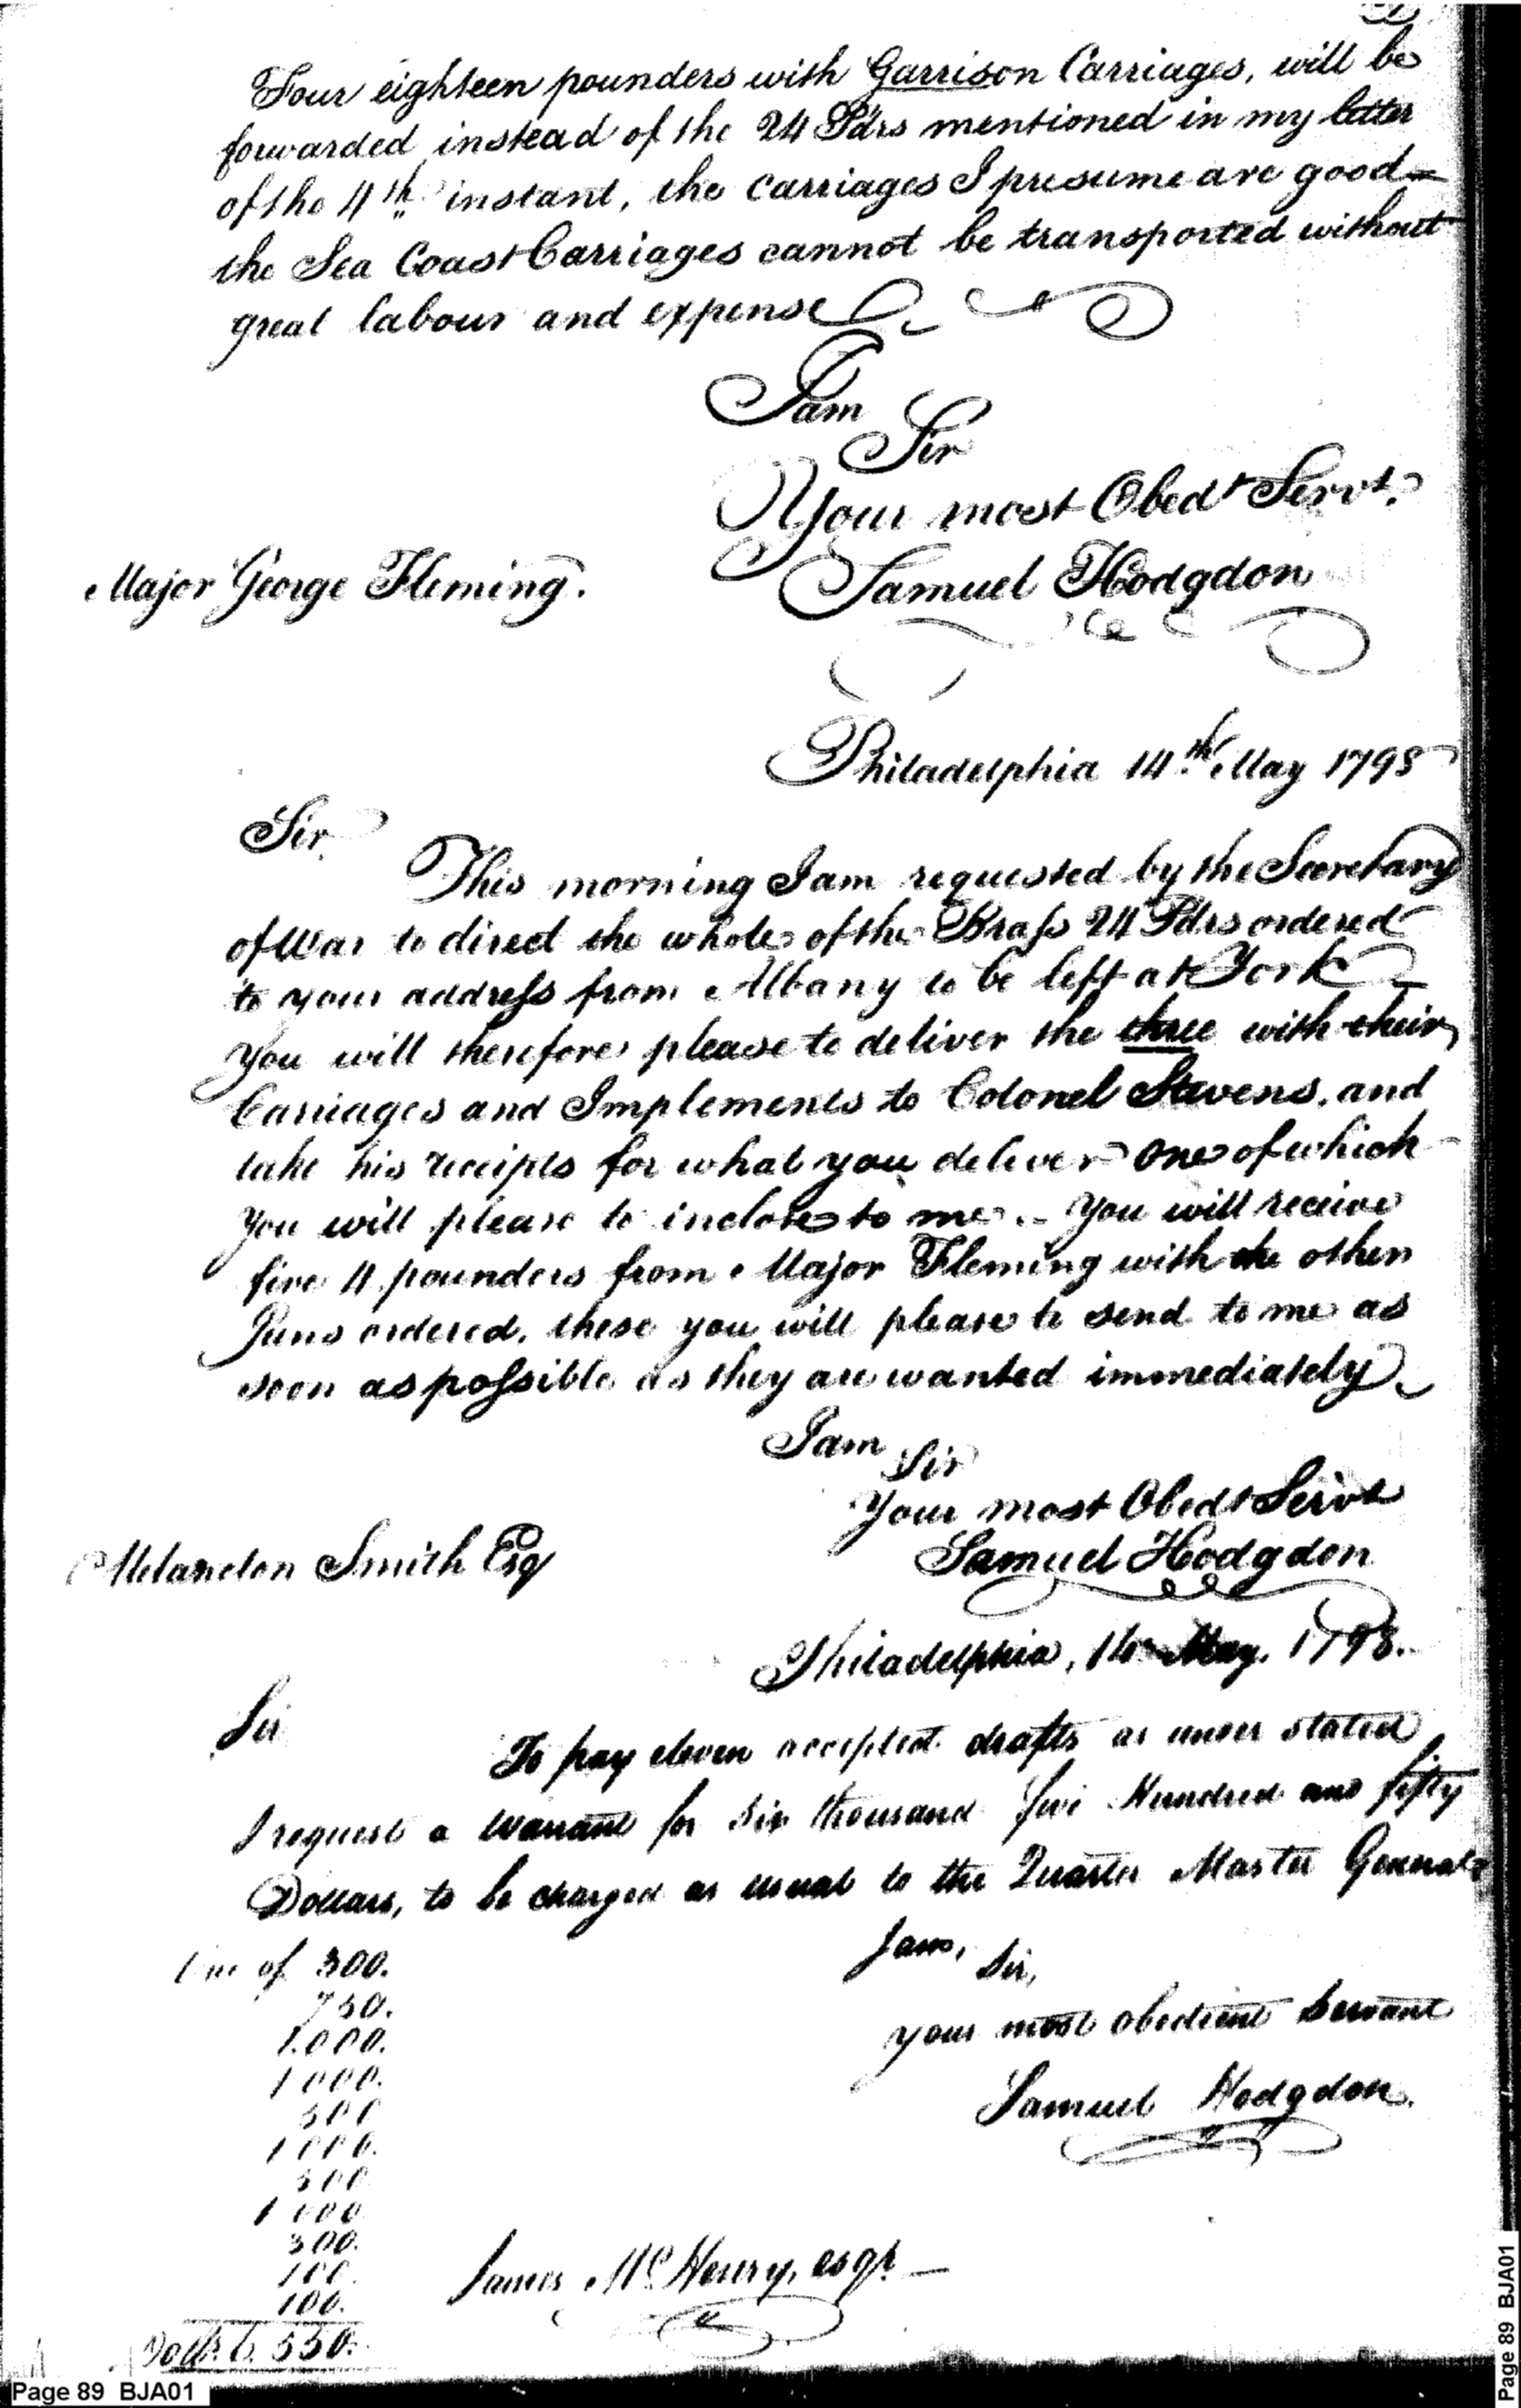 Four eighteen pounders with Garrison Carriages, will be
forwarded instead of the 24 Pdrs mentioned in my letter
of the 4th instant, the carriages I presume are good -
the Sea Coast Carriages cannot be transported without
great labour and expense
I am
Sir
Your most Obedt Servt.
Major George Fleming.
Samuel Hodgdon
Philadelphia 14th May 1798
Sir
This morning I am requested by the Secretary
of War to direct the whole of the Brass 24 Pdrs ordered
to your address from Albany to be left at York
You will therefore please to deliver the three with their
Carriages and Implements to Colonel Stevens, and
take his receipts for what you deliver one of which
you will please to inclose to me. - You will receive
five 4 pounders from Major Fleming with the other
Guns ordered, these you will please to send to me as
soon as possible as they are wanted immediately
I am
Sir
Your most Obedt Servt
Samuel Hodgdon
Melancton Smith Esq
Philadelphia, May. 1798.
Sir
To pay eleven accepted drafts as under stated
I request a warrant for Six thousand five Hundred and fifty
Dollars, to be charged as usual to the Quarter Master General
I am,
Sir,
your most obedient Servant
Samuel Hodgdon.
One of 300.
750.
1.000.
1000.
500
1000.
500
1000
300.
100.
100.
Dolls. 6.550.
James McHenry, esqr. -
Page 89 BJA01
Page 89 BJA01